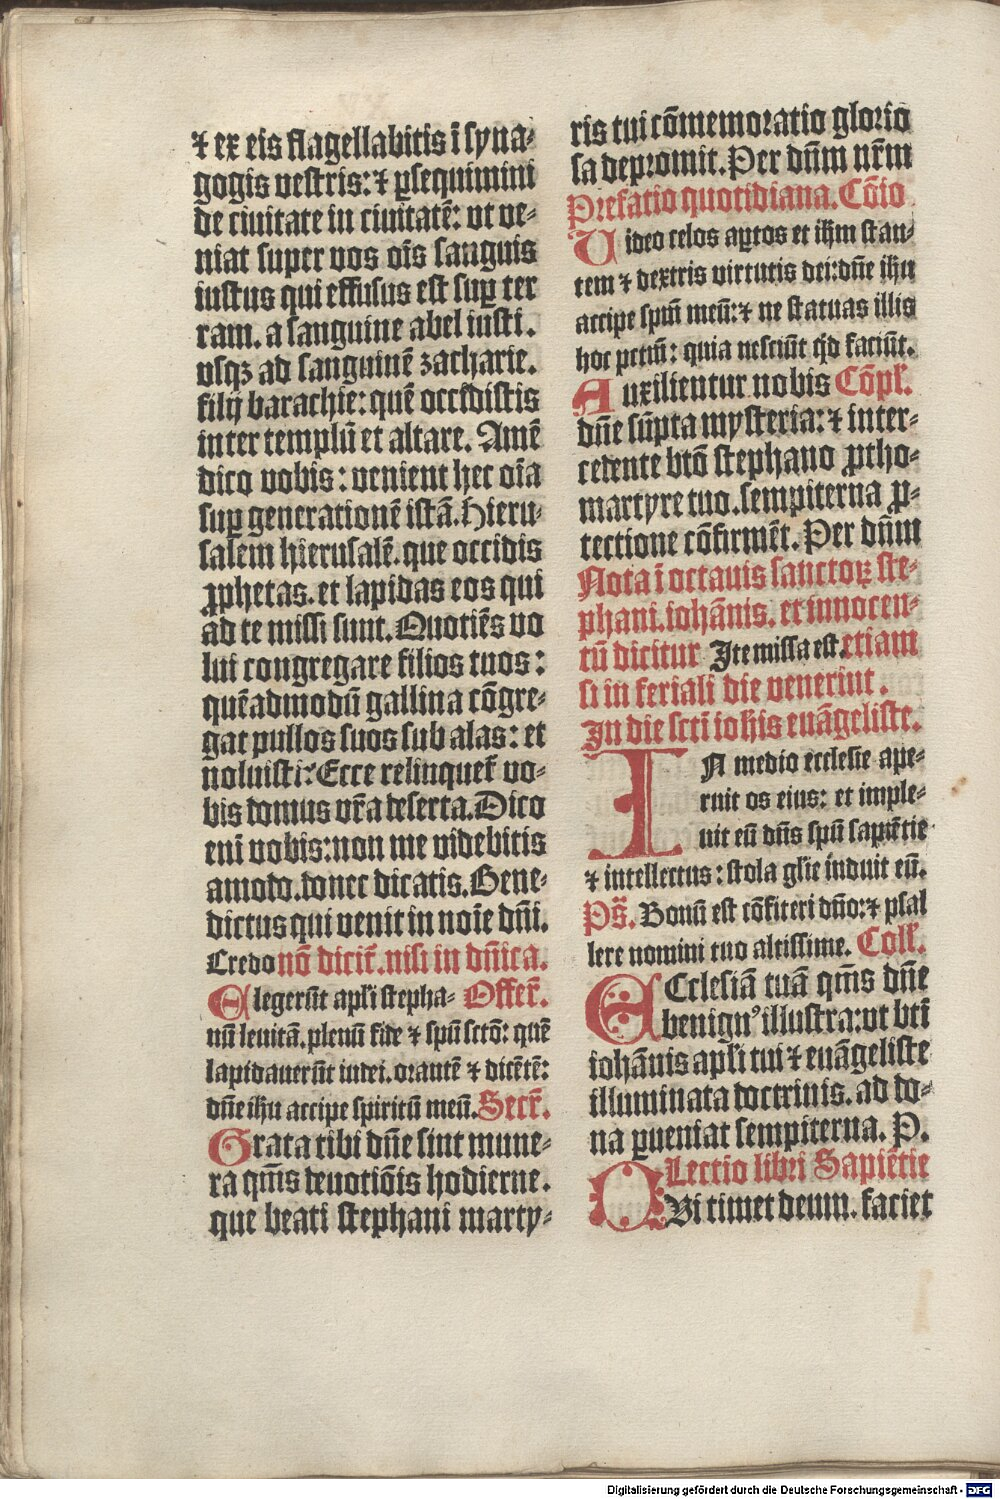 ⁊ ex eis flagellabitis ī syna-
gogis vestris: ⁊ ꝑsequimini
de ciuitate in ciuitatē: vt ve-
niat super vos oīs sanguis
iustus qui effusus est suꝑ ter
ram. a sanguine abel iusti.
vsqꝫ ad sanguinē zacharie.
filij barachie: quē occidistis
inter templū et altare. Amē
dico vobis: venient hec oīa
suꝑ generationē istā. Hieru-
salem hierusalē. que occidis
ꝓphetas. et lapidas eos qui
ad te missi sunt. Quotiēs vo
lui congregare filios tuos:
quēadmodū gallina cōgre-
gat pullos suos sub alas: et
noluisti? Ecce relinquet᷑ vo-
bis domus vr̄a deserta. Dico
enī vobis: non me videbitis
amodo. donec dicatis. Bene-
dictus qui venit in noīe dn̄i.
Credo nō dicit᷑. nisi in dn̄ica.
Elegerūt apl̄i stepha- Offer̄.
nū leuitā. plenū fide ⁊ spū sctō: quē
lapidauerūt iudei. orantē ⁊ dicētē:
dn̄e ihū accipe spiritū meū. Secr̄.
Grata tibi dn̄e sint mune-
ra qm̄s deuotiōis hodierne.
que beati stephani marty-
ris tui cōmemoratio glorio
sa depromit. Per dn̄m nr̄m
Prefatio quotidiana. Cōio
Video celos aꝑtos et ihm̄ stan-
tem ⁊ dextris virtutis dei: dn̄e ihū
accipe spm̄ meū: ⁊ ne statuas illis
hoc pctm̄: quia nesciūt qd̓ faciūt.
Auxilientur nobis Cōpl̄.
dn̄e sūpta mysteria: ⁊ inter-
cedente btō stephano ꝓtho-
martyre tuo. sempiterna ꝓ-
tectione cōfirmēt. Per dn̄m
Nota ī octauis sanctoꝝ ste-
phani. iohānis. et innocen-
tū dicitur Ite missa est. etiam
si in feriali die venerint.
In die sctī ioh̄is euāgeliste.
IN medio ecclesie ape-
ruit os eius: et imple-
uit eū dn̄s spū sapiētie
⁊ intellectus: stola glīe induit eū.
Ps̄. Bonū est cōfiteri dn̄o: ⁊ psal
lere nomini tuo altissime. Coll̄.
ECclesiā tuā qm̄s dn̄e
benignꝰ illustra: vt btī
iohānis apl̄i tui ⁊ euāgeliste
illuminata doctrinis. ad do-
na ꝑueniat sempiterna. P.
Lectio libri Sapiētie
QUi timet deum. faciet
Digitalisierung gefördert durch die Deutsche Forschungsgemeinschaft - DFG